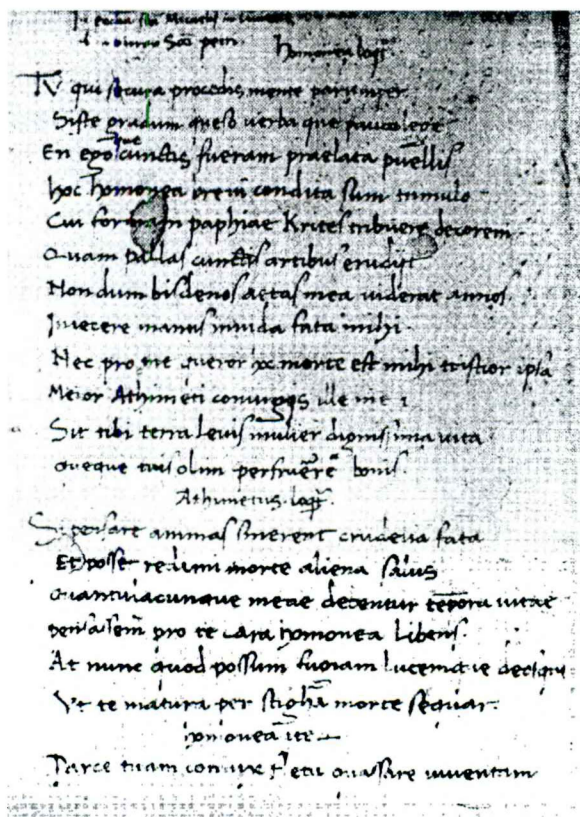 homonea loqr
Tv qui secura procedis mente parumper
Siste gradum queso uerba que pauca lege
En ego que cunctis fueram praelata puellis
hoc homonea breui condita sum tumulo
Cui formam paphiae Krites tribuere decorem
Quam Pallas cunctis artibus erudiit
Nondum bis denos aetas mea uiderat annos
Iniecere manus inuida fata mihi
Nec pro me queror hoc morte est mihi tristior ipsa
Meror Athimeti coniugis ille mei
Sit tibi terra leuis mulier dignissima uita
queque tuis olim perfruere bonis
Athimetus loqr
Si pensare animas sinerent crudelia fata
Et posset redimi morte aliena salus
Quantulacunque meae debentur tempora uitae
pensassem pro te cara homonea libens
At nunc quod possum fugiam lucemque deosque
Vt te matura per stigham morte sequar
homonea ite
Parce tuam coniux fletu quassare iuuentam